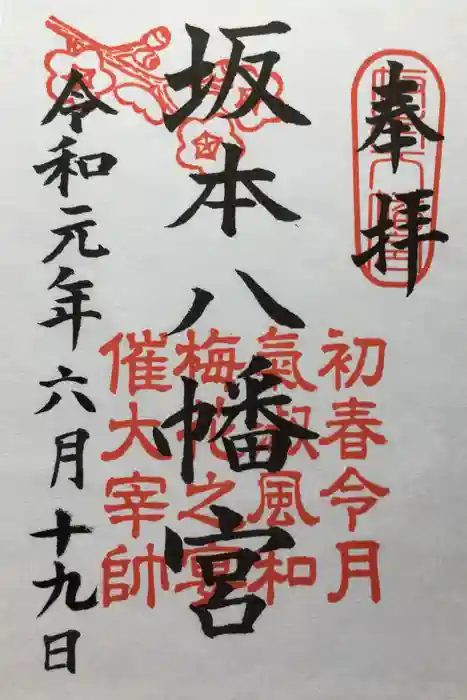 奉拝
坂本八幡宮
令和元年六月十九日
初春令月
氣淑風和
梅花之宴
催大宰帥